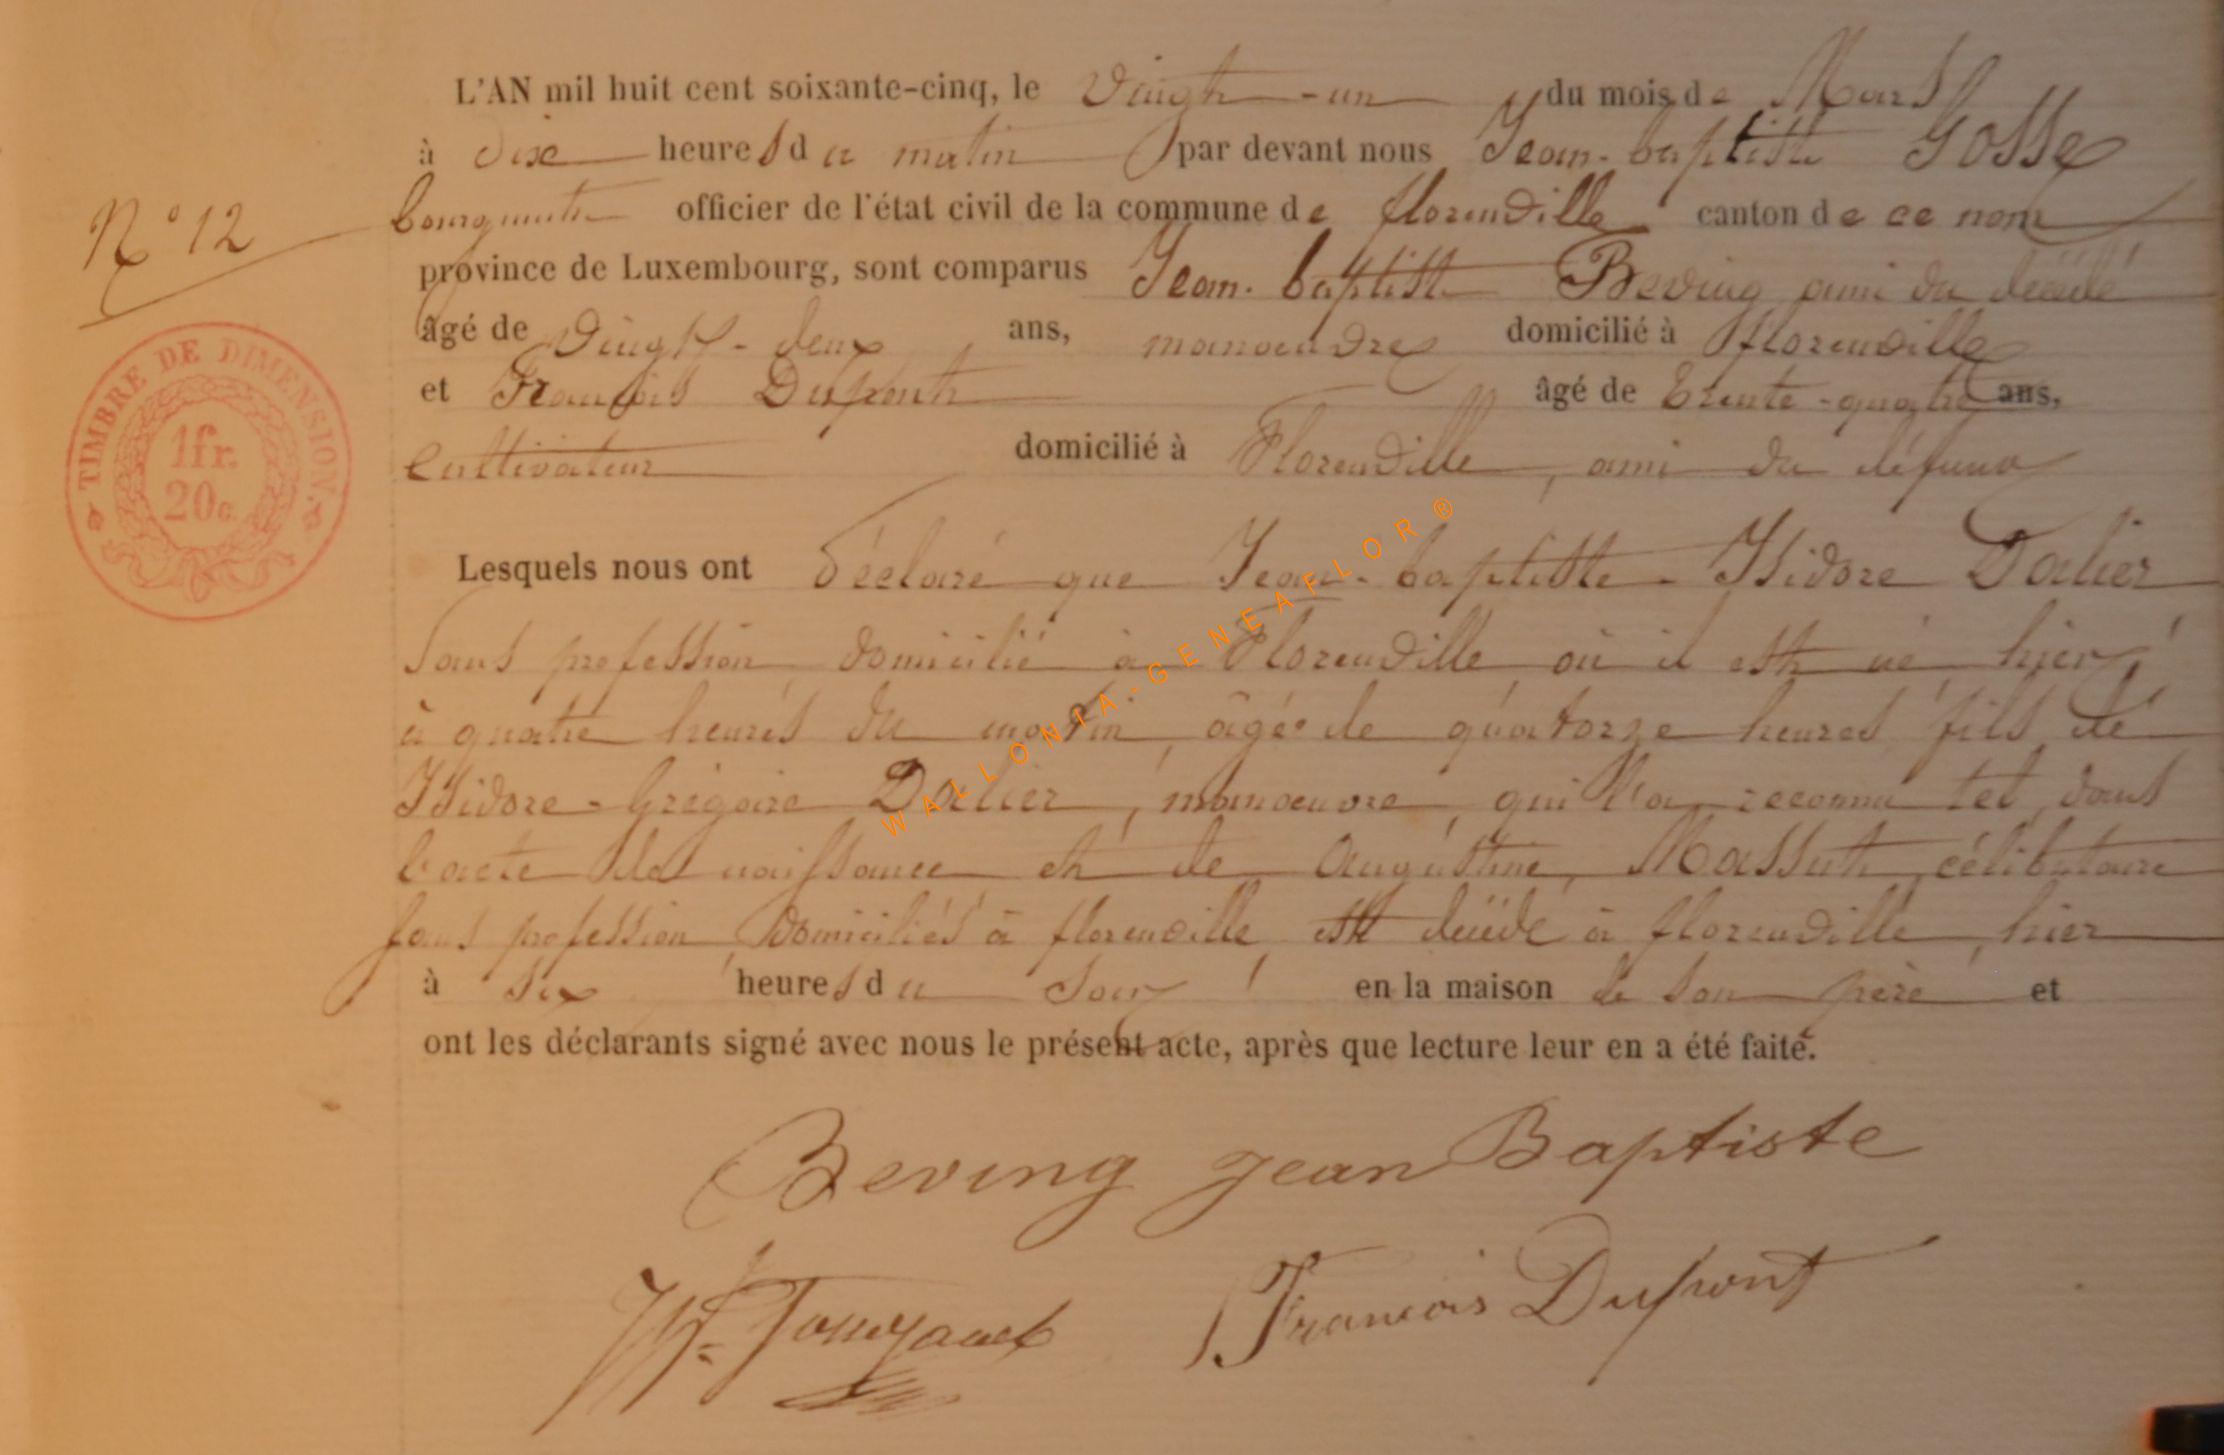 L'AN mil huit cent soixante-cinq, le Vingt-un du mois de Mars
à dix heures du matin par devant nous Jean-baptiste Gosse
N° 12
bourgmestre officier de l'état civil de la commune de florenville canton de ce nom
province de Luxembourg, sont comparus Jean-baptiste Beving ami du décédé
âgé de Vingt-deux ans, manoeuvre domicilié à florenville
et François Dupont âgé de trente-quatre ans,
Cultivateur domicilié à Florenville, ami du défunt
TIMBRE DE DIMENSION.
1fr.
20c.
Lesquels nous ont déclaré que Jean-baptiste-Isidore Dalier
sans profession, domicilié à Florenville où il est né hier,
à quatre heures du matin, âgé de quatorze heures, fils de
Isidore-Grégoire Dalier, manoeuvre, qui l'a reconnu tel, dans
l'acte de naissance et de Augustine Massut, célibataire
sans profession, domiciliés à florenville, est décédé à florenville, hier
à six heures du soir, en la maison de son père et
ont les déclarants signé avec nous le présent acte, après que lecture leur en a été faite.
Beving Jean Baptiste
François Dupont
WALLONIA-GENEAFLOR ®